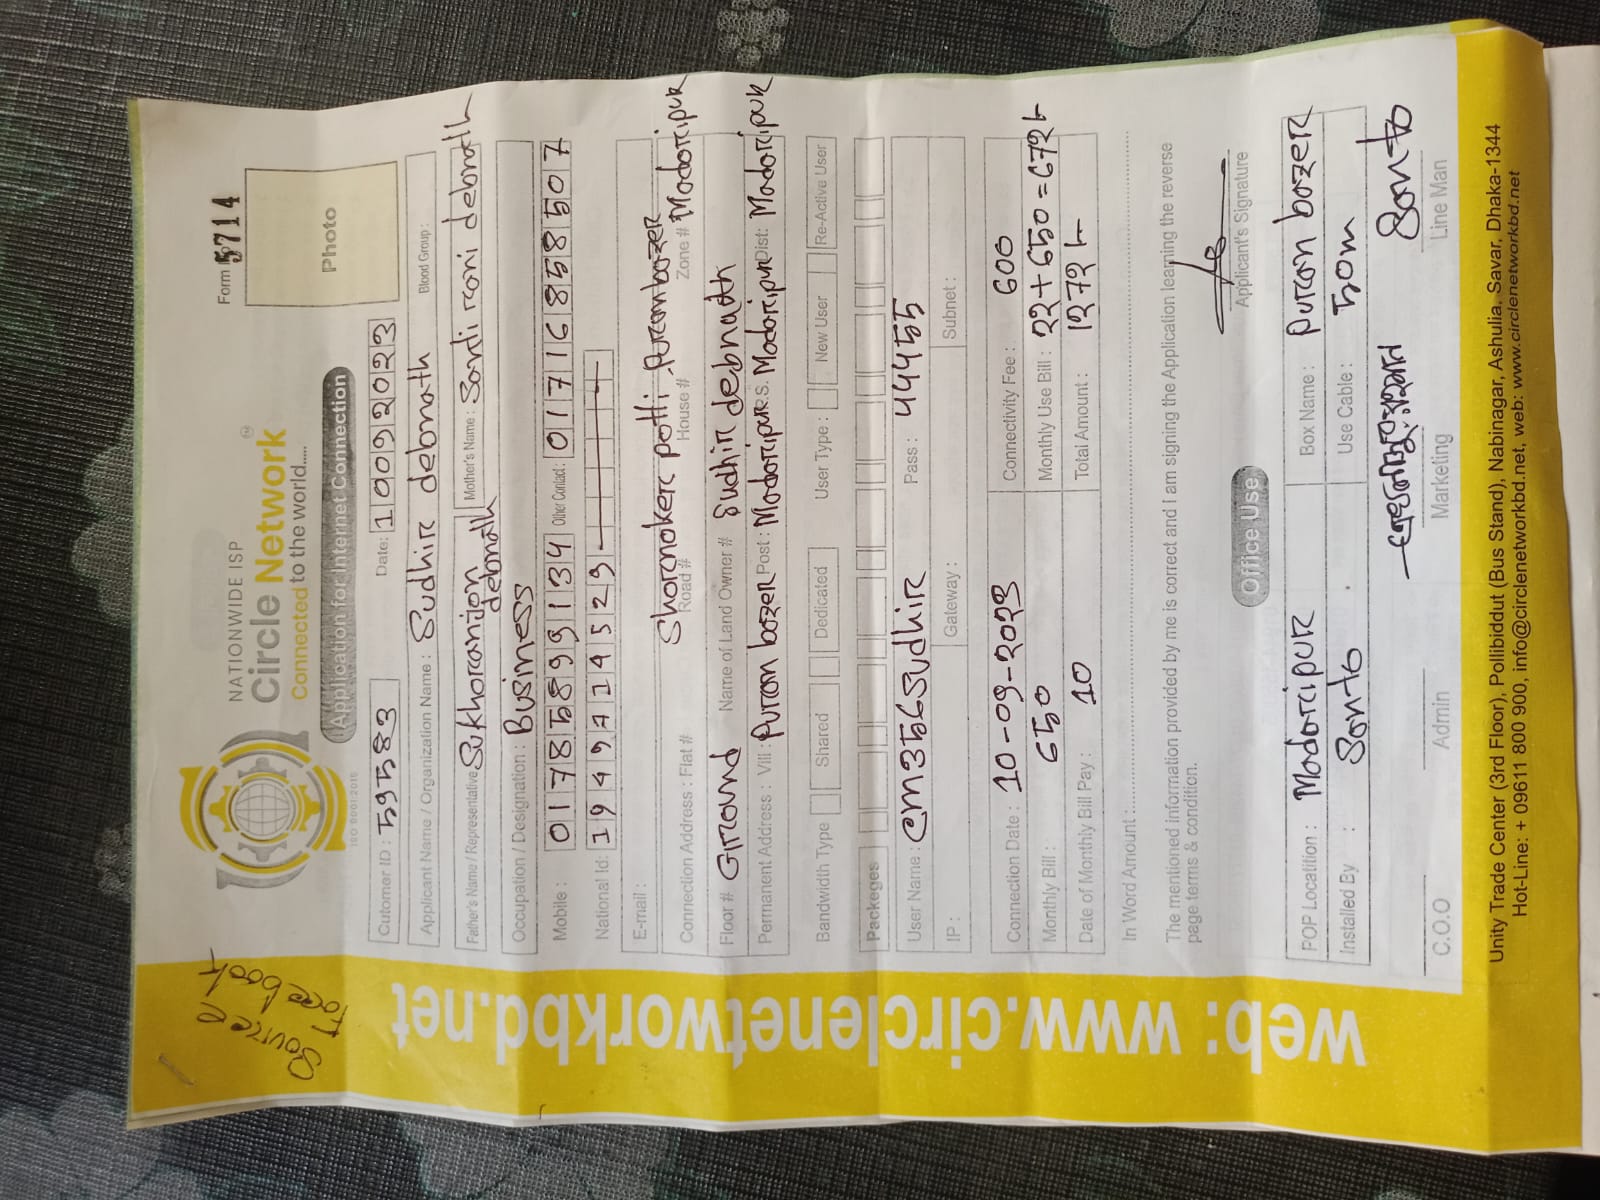 Source
Facebook
NATIONWIDE ISP
Circle Network
Connected to the world.....
ISO 9001:2015
Form 5714
Photo
Application for Internet Connection
Cutomer ID : 59583 Date: 10092023
Applicant Name / Organization Name : Sudhir debnath Blood Group :
Father's Name / Representative Sukhoranjon debnath Mother's Name : Sondi rani debnath
Occupation / Designation : Business
Mobile : 01785899134 Other Contact: 01716858507
National Id: 1949714529
E-mail :
Connection Address : Flat # Road # House # Zone # Shornoker potti, puranbazer Madaripur
Floor # Ground Name of Land Owner # Sudhir debnath
Permanent Address : Vill : Puran bazer Post : Madaripur P.S. Madaripur Dist: Madaripur
Bandwidth Type Shared Dedicated User Type : New User Re-Active User
Packeges
User Name : cm356sudhir Pass : 44455
IP : Gateway : Subnet :
Connection Date : 10-09-2023 Connectivity Fee : 600
Monthly Bill : 650 Monthly Use Bill : 22+650=672/-
Date of Monthly Bill Pay : 10 Total Amount : 1272/-
In Word Amount :
The mentioned information provided by me is correct and I am signing the Application learning the reverse
page terms & condition.
Applicant's Signature
Office Use
POP Locatition : Madaripur Box Name : puran bazer
Installed By : Sonto Use Cable : 50m
Sonto
C.O.O Admin Marketing Line Man
Unity Trade Center (3rd Floor), Pollibiddut (Bus Stand), Nabinagar, Ashulia, Savar, Dhaka-1344
Hot-Line: + 09611 800 900, info@circlenetworkbd.net, web: www.circlenetworkbd.net
web: www.circlenetworkbd.net